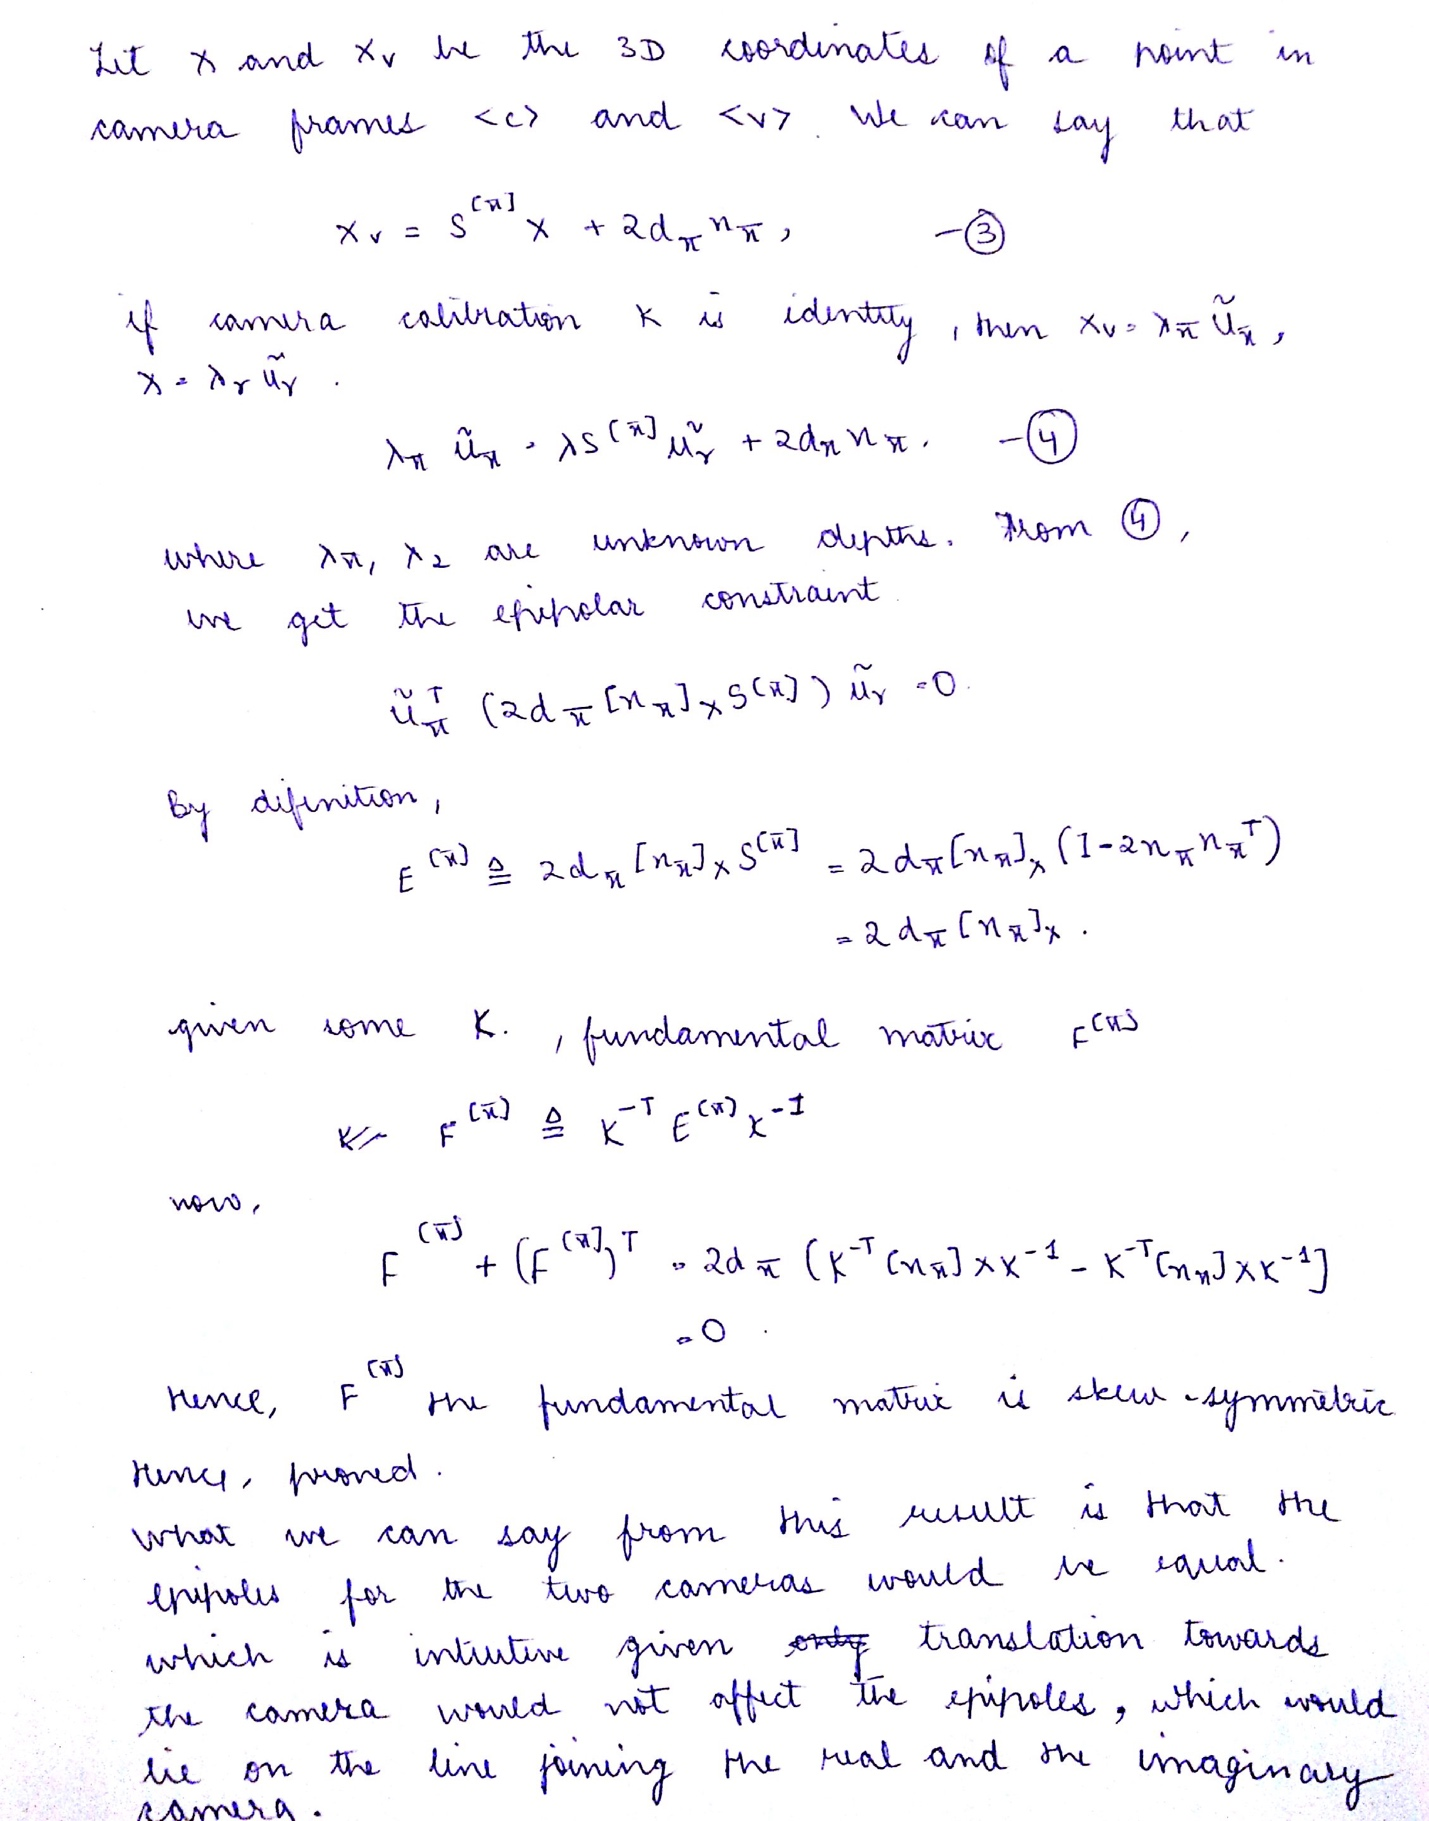 Let X and Xv be the 3D coordinates of a point in
camera frames <c> and <v>. We can say that
Xv = S^(π) X + 2d_π n_π, -③
if camera calibration K is identity, then Xv = λ_π ũ_π,
X = λ_r ũ_r .
λ_π ũ_π = λ S^(π) ũ_r + 2d_π n_π. -④
where λ_π, λ_2 are unknown depths. From ④,
we get the epipolar constraint
ũ_π^T (2d_π [n_π]_× S^(π)) ũ_r = 0.
By difinition,
E^(π) ≜ 2d_π [n_π]_× S^(π) = 2d_π [n_π]_× (I - 2n_π n_π^T)
= 2d_π [n_π]_× .
given some K. , fundamental matrix F^(π)
F^(π) ≜ K^-T E^(π) K^-1
now,
F^(π) + (F^(π))^T = 2d_π (K^-T [n_π]_× K^-1 - K^-T [n_π]_× K^-1]
= 0 .
Hence, F^(π) the fundamental matrix is skew-symmetric
Hence, proved.
What we can say from this result is that the
epipoles for the two cameras would be equal.
which is intiutive given only translation towards
the camera would not affect the epipoles, which would
lie on the line joining the real and the imaginary
camera.